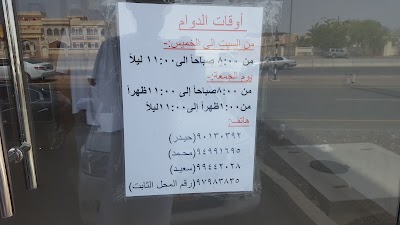 أوقات الدوام
من السبت إلى الخميس:-
من ٨:٠٠ صباحاً إلى ١١:٠٠ ليلاً
يوم الجمعة:-
من ٨:٠٠ صباحاً إلى ١١:٠٠ ظهراً
من ١:٠٠ ظهراً إلى ١١:٠٠ ليلاً
هاتف:
٩٠١٣٠٣٩٢ (حيدر)
٩٤٩٩١٦٩٥ (محمد)
٩٩٤٤٢٠٢٨ (سعيد)
٩٧٩٨٣٨٣٥ (رقم المحل الثابت)